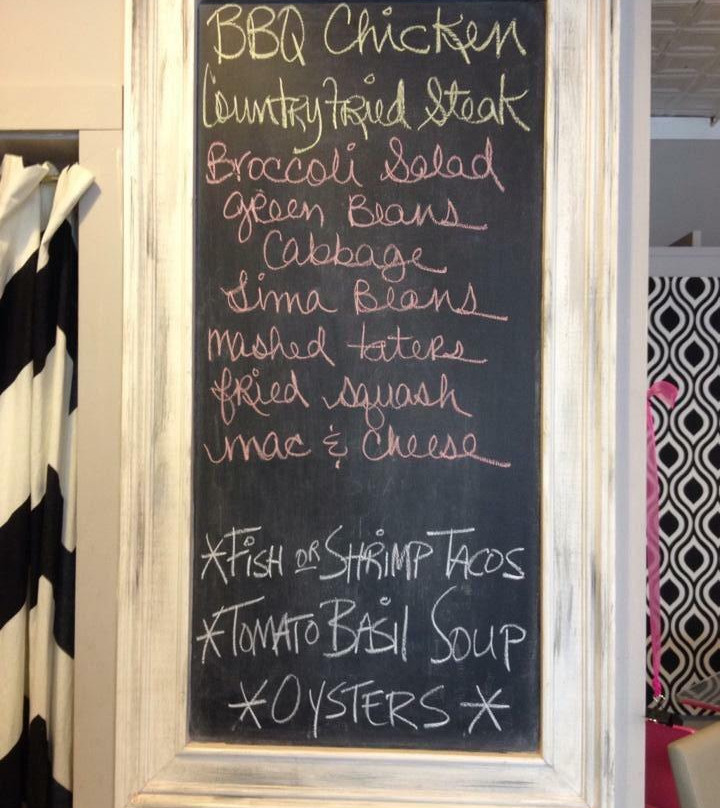 BBQ Chicken
Country Fried Steak
Broccoli Salad
green Beans
Cabbage
Lima Beans
mashed taters
fried squash
mac & cheese
*FISH OR SHRIMP TACOS
*TOMATO BASiL SOUP
*OYSTERS*